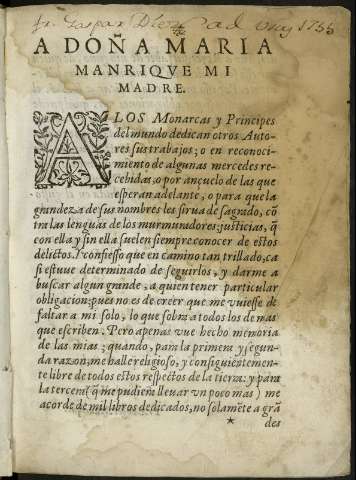 fr. Gaspar Diez ad Usu 1755
A DOÑA MARIA
MANRIQVE MI
MADRE.
A LOS Monarcas y Principes
del mundo dedican otros Auto-
res sus trabajos; o en reconoci-
miento de algunas mercedes re-
cebidas, o por ançuelo de las que
esperan adelante, o para que la
grandeza de sus nombres les sirua de sagrado, cõ
tra las lenguas de los murmuradores; justicias, q̃
con ella y sin ella suelen siempre conocer de estos
delictos. I confiesso que en camino tan trillado, ca
si estuue determinado de seguirlos, y darme a
buscar algun grande, a quien tener particular
obligacion: pues no es de creer que me vuiesse de
faltar a mi solo, lo que sobra a todos los de mas
que escriben. Pero apenas vue hecho memoria
de las mias; quando, para la primera y segun-
da razon; me halle religioso, y consiguientemen-
te libre de todos estos respectos de la tierra: y para
la tercera (q̃ me pudiera lleuar vn poco mas) me
acorde de mil libros dedicados, no solamẽte a grã
des